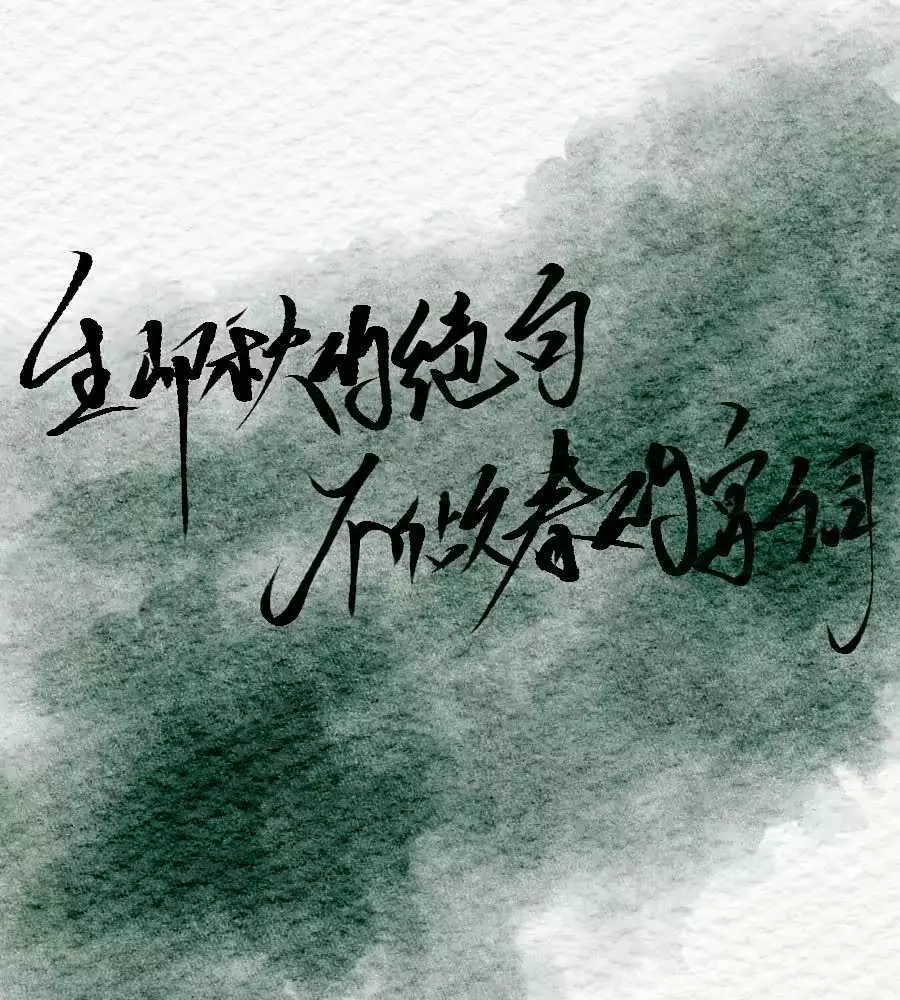 生即秋的绝句
不做春的寡词